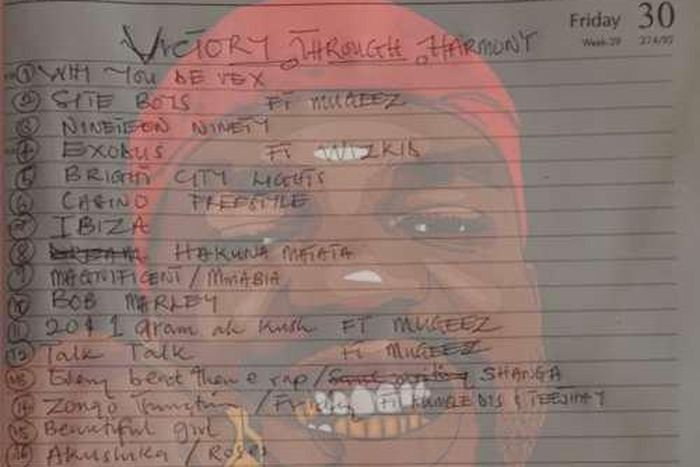 Friday 30
Week 39 274/92
VICTORY THROUGH HARMONY
1 WHY YOU BE VEX
2 SITE BOYS FT MUGEEZ
3 NINETEEN NINETY
4 EXODUS FT WIZKID
5 BRIGHT CITY LIGHTS
6 CASINO FREESTYLE
7 IBIZA
8 HAKUNA MATATA
9 MAGNIFICENT / MMABIA
10 BOB MARLEY
11 20 1 gram ah kush FT MUGEEZ
12 Talk Talk Ft MUGEEZ
13 Every beat then e rap / SHANGA
14 Zongo / Ft & TEEJHAY
15 Beautiful girl
16 Akushika / Roses